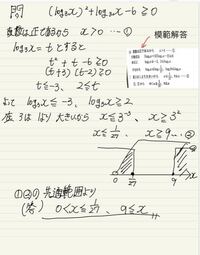 問 (log₃x)²+log₃x-6≧0
真数は正であるから x>0 …①
模範解答
log₃x=tとすると
t²+t-6≧0
(t+3)(t-2)≧0
t≦-3, 2≦t
よって log₃x≦-3, log₃x≧2
底3は1より大きいから x≦3⁻³, x≧3²
x≦1/27, x≧9 …②
②
①
0 1/27 9 x
①②の共通範囲より
(答) 0<x≦1/27, 9≦x